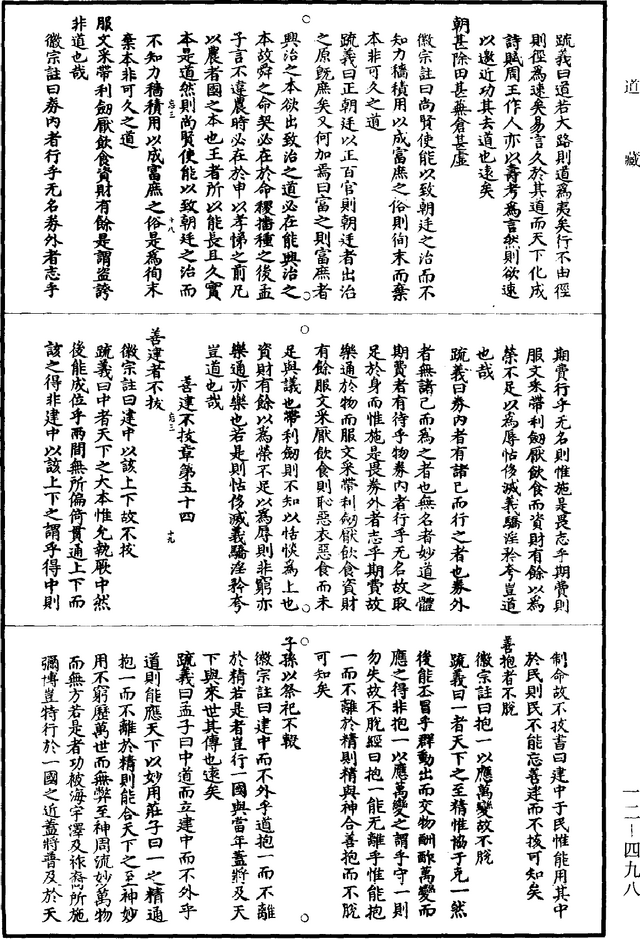 道藏
疏義曰道若大路則道爲夷矣行不由徑
則徑爲速矣易言久於其道而天下化成
詩賦周王作人亦以壽考爲言然則欲速
以邀近功其去道也遠矣
朝甚除田甚蕪倉甚虛
徽宗註曰尚賢使能以致朝廷之治而不
知力穡積用以成富庶之俗則徇末而棄
本非可久之道
疏義曰正朝廷以正百官則朝廷者出治
之原旣庶矣又何加焉曰富之則富庶者
興治之本欲出致治之道必在能興治之
本故舜之命契必在於命稷播種之後孟
子言不違農時必在於申以孝悌之前凡
以農者國之本也王者所以能長且久實
本是道然則尚賢使能以致朝廷之治而
忘三
十八
不知力穡積用以成富庶之俗是爲徇末
棄本非可久之道
服文采帶利劔厭飲食資財有餘是謂盜誇
非道也哉
徽宗註曰券內者行乎无名券外者志乎
期費行乎无名則惟施是畏志乎期費則
服文采帶利劔厭飲食而資財有餘以爲
榮不足以爲辱怙侈滅義驕淫矜夸豈道
也哉
疏義曰券內者有諸己而行之者也券外
者無諸己而爲之者也無名者妙道之體
期費者有待乎物券內者行乎无名故取
足於身而惟施是畏券外者志乎期費故
樂通於物而服文采帶利劔厭飲食資財
有餘服文采厭飲食則恥惡衣惡食而未
足與議也帶利劔則不知以恬惔爲上也
資財有餘以爲榮不足以爲辱則非窮亦
樂通亦樂也若是則怙侈滅義驕淫矜夸
豈道也哉
善建不拔章第五十四
善建者不拔
忘三
十九
徽宗註曰建中以該上下故不拔
疏義曰中者天下之大本惟允執厥中然
後能成位乎兩間無所偏倚貫通上下而
該之得非建中以該上下之謂乎得中則
制命故不拔書曰建中于民惟能用其中
於民則民不能忘善建而不拔可知矣
善抱者不脫
徽宗註曰抱一以應萬變故不脫
疏義曰一者天下之至精惟協于克一然
後能丕冒乎群動出而交物酬酢萬變而
應之得非抱一以應萬變之謂乎守一則
勿失故不脫經曰抱一能无離乎惟能抱
一而不離於精則精與神合善抱而不脫
可知矣
子孫以祭祀不輟
徽宗註曰建中而不外乎道抱一而不離
於精若是者豈行一國與當年蓋將及天
下與來世其傳也遠矣
疏義曰孟子曰中道而立建中而不外乎
道則能應天下以妙用莊子曰一之精通
抱一而不離於精則能合天下之至神妙
用不窮歷萬世而無弊至神周流妙萬物
而無方若是者功被海宇澤及祚裔所施
彌博豈特行於一國之近蓋將普及於天
一二—四九八